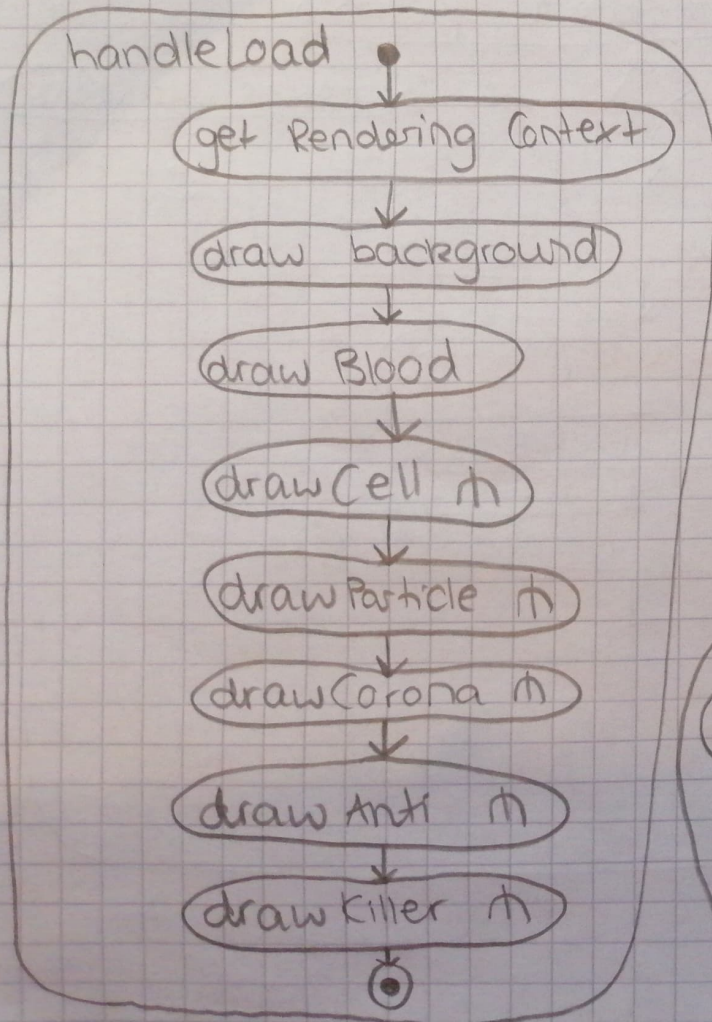 handleLoad
get Rendering Context
draw background
draw Blood
drawCell
drawParticle
drawCorona
draw Anti
draw Killer